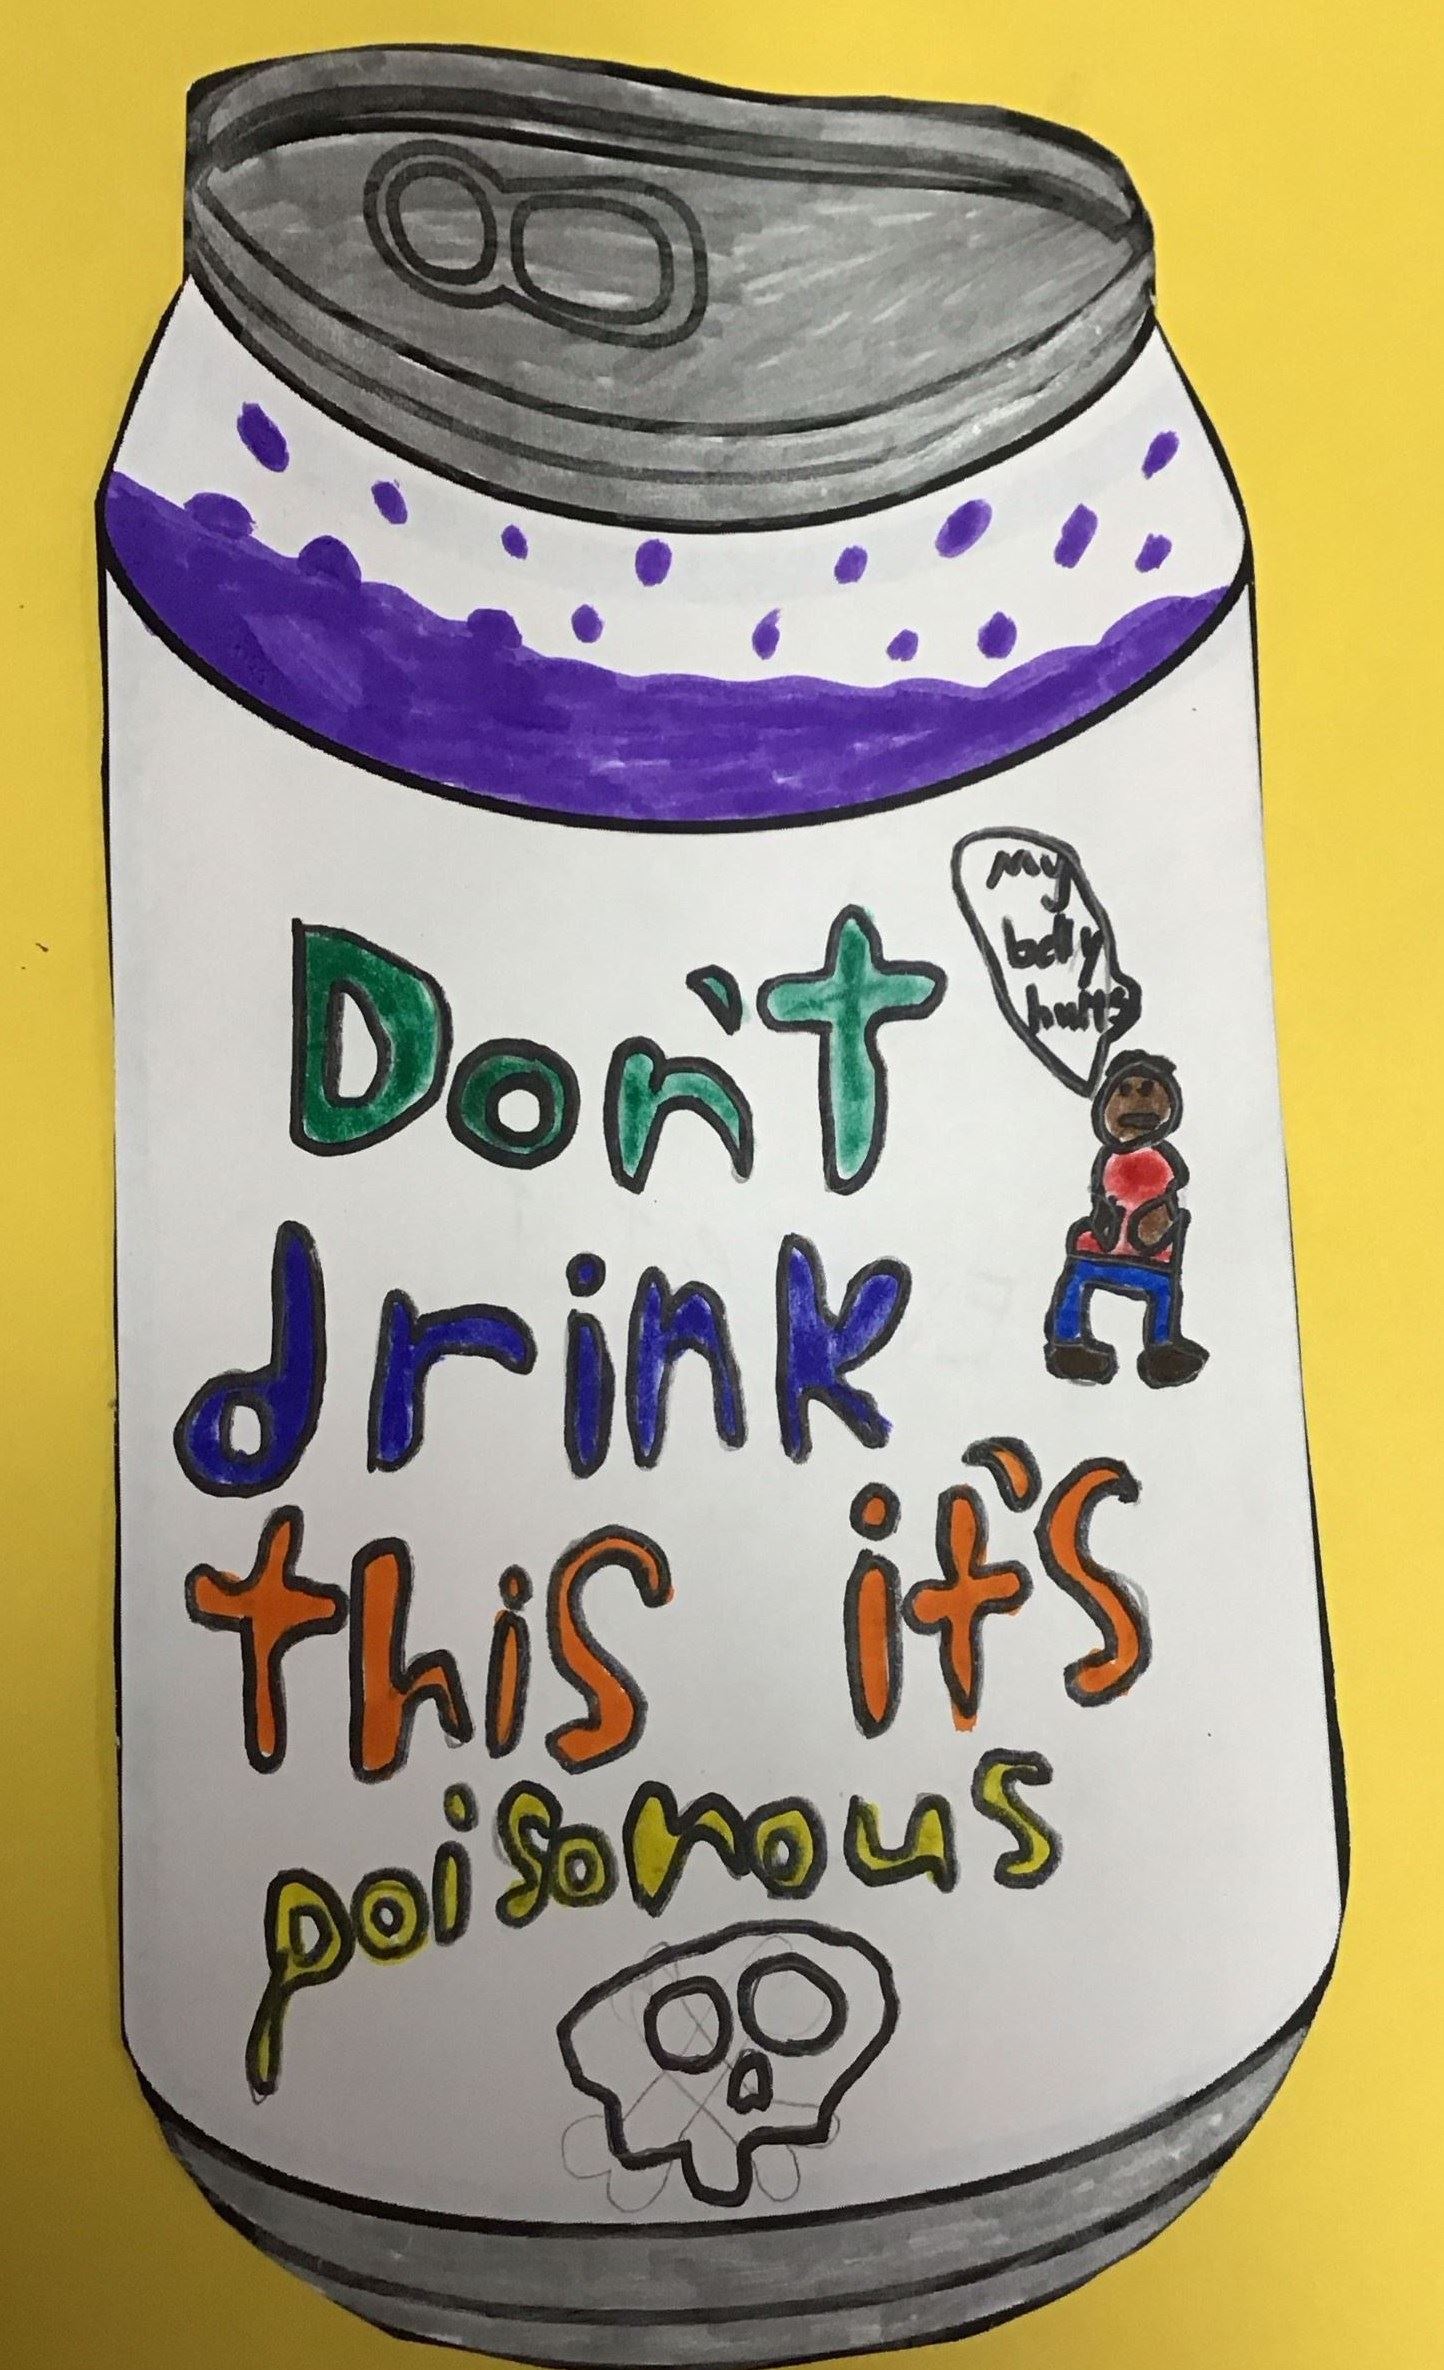 my
belly
hurts
Don't
drink
this it's
poisonous